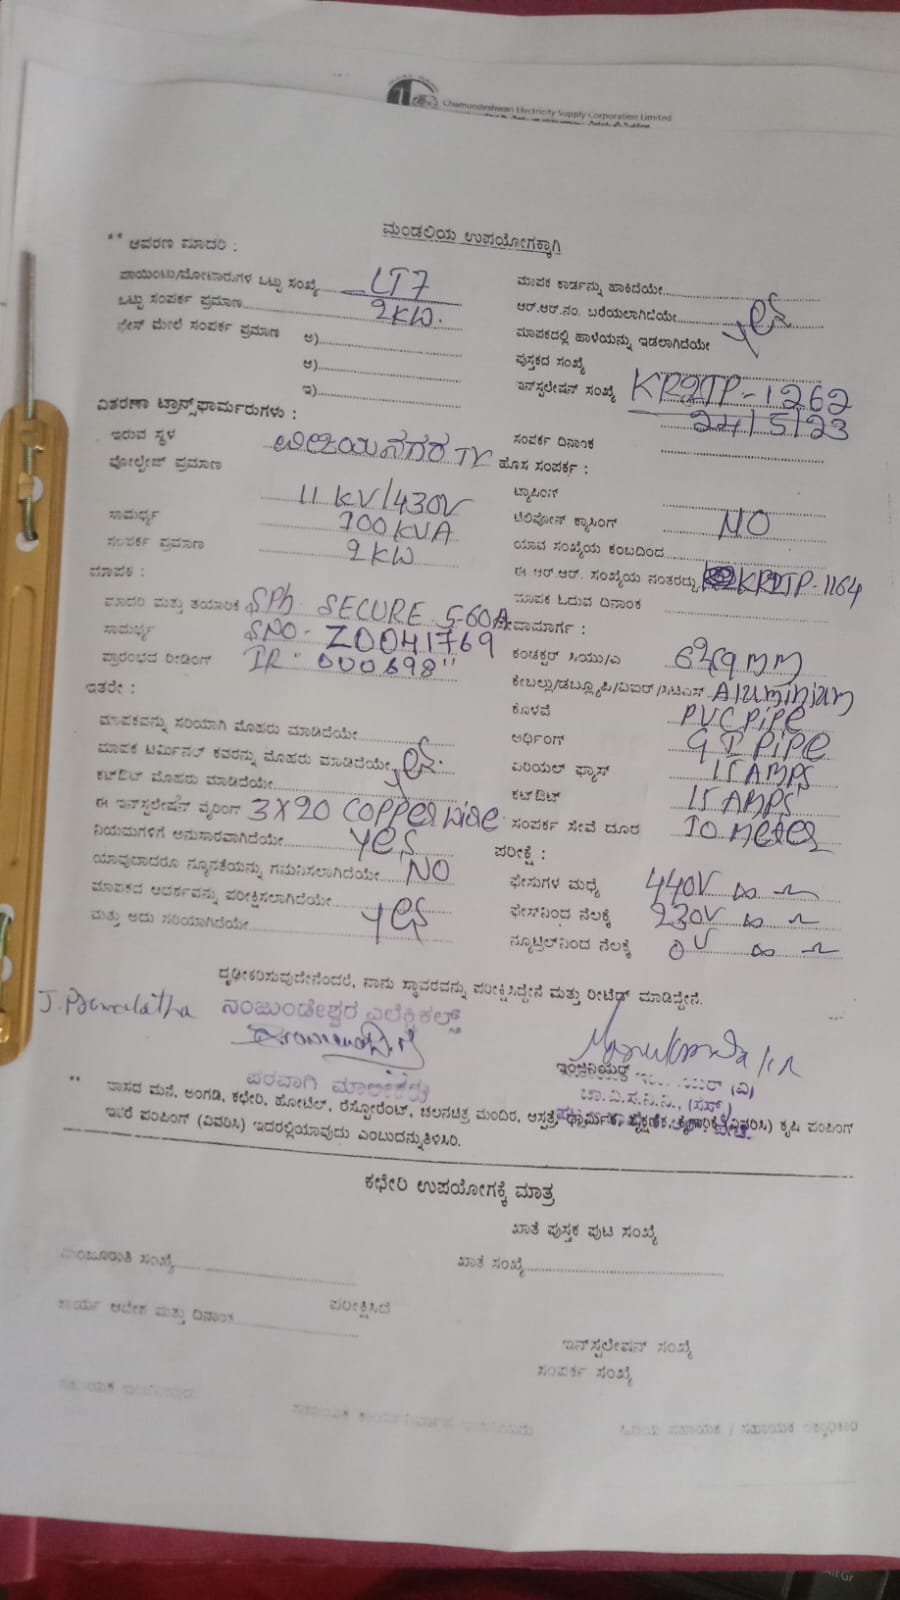 Chamundeshwari Electricity Supply Corporation Limited
ಮಂಡಲಿಯ ಉಪಯೋಗಕ್ಕಾಗಿ
** ಆವರಣ ಮಾದರಿ :
ಪಾಯಿಂಟು/ಮೋಟಾರುಗಳ ಒಟ್ಟು ಸಂಖ್ಯೆ LT7
ಒಟ್ಟು ಸಂಪರ್ಕ ಪ್ರಮಾಣ 2KW.
ಫೇಸ್ ಮೇಲೆ ಸಂಪರ್ಕ ಪ್ರಮಾಣ ಅ)
ಆ)
ಇ)
ವಿತರಣಾ ಟ್ರಾನ್ಸ್‌ಫಾರ್ಮರುಗಳು :
ಇರುವ ಸ್ಥಳ ವಿಜಯನಗರ TC
ವೋಲ್ಟೇಜ್ ಪ್ರಮಾಣ 11 KV/430V
ಸಾಮರ್ಥ್ಯ 100KVA
ಸಂಪರ್ಕ ಪ್ರಮಾಣ 2KW
ಮಾಪಕ :
ಮಾದರಿ ಮತ್ತು ತಯಾರಿಕೆ SPh SECURE 5-60A
ಸಾಮರ್ಥ್ಯ SNO- Z0041769
ಪ್ರಾರಂಭದ ರೀಡಿಂಗ್ IR "000698"
ಇತರೇ :
ಮಾಪಕವನ್ನು ಸರಿಯಾಗಿ ಮೊಹರು ಮಾಡಿದೆಯೇ
ಮಾಪಕ ಟರ್ಮಿನಲ್ ಕವರನ್ನು ಮೊಹರು ಮಾಡಿದೆಯೇ yes
ಕಟ್‌ಔಟ್ ಮೊಹರು ಮಾಡಿದೆಯೇ
ಈ ಇನ್‌ಸ್ಟಲೇಷನ್ ವೈರಿಂಗ್ 3X20 COPPER wire
ನಿಯಮಗಳಿಗೆ ಅನುಸಾರವಾಗಿದೆಯೇ yes
ಯಾವುದಾದರೂ ನ್ಯೂನತೆಯನ್ನು ಗಮನಿಸಲಾಗಿದೆಯೇ NO
ಮಾಪಕದ ಆದರ್ಶವನ್ನು ಪರೀಕ್ಷಿಸಲಾಗಿದೆಯೇ
ಮತ್ತು ಅದು ಸರಿಯಾಗಿದೆಯೇ yes
ಮಾಪಕ ಕಾರ್ಡನ್ನು ಹಾಕಿದೆಯೇ
ಆರ್.ಆರ್.ನಂ. ಬರೆಯಲಾಗಿದೆಯೇ yes
ಮಾಪಕದಲ್ಲಿ ಹಾಳೆಯನ್ನು ಇಡಲಾಗಿದೆಯೇ
ಪುಸ್ತಕದ ಸಂಖ್ಯೆ
ಇನ್‌ಸ್ಟಲೇಷನ್ ಸಂಖ್ಯೆ KRDTP-1262
24/5/23
ಸಂಪರ್ಕ ದಿನಾಂಕ
ಹೊಸ ಸಂಪರ್ಕ :
ಟ್ಯಾಪಿಂಗ್
ಟೆಲಿಫೋನ್ ಕ್ರಾಸಿಂಗ್ NO
ಯಾವ ಸಂಖ್ಯೆಯ ಕಂಬದಿಂದ
ಈ ಆರ್.ಆರ್. ಸಂಖ್ಯೆಯ ನಂತರದ್ದು KRDTP-1164
ಮಾಪಕ ಓದುವ ದಿನಾಂಕ
ಸೇವಾಮಾರ್ಗ :
ಕಂಡಕ್ಟರ್ ಸಿಯು/ಎ
ಕೇಬಲ್ಲು/ಡಬ್ಲ್ಯೂಪಿ/ವಿಐರ್/ಸಿಟಿಎಸ್ Aluminium
ಕೊಳವೆ PVC Pipe
ಅರ್ಥಿಂಗ್ G I Pipe
ಏರಿಯಲ್ ಫ್ಯೂಸ್ 15 AMPS
ಕಟ್‌ಔಟ್ 15 AMPS
ಸಂಪರ್ಕ ಸೇವೆ ದೂರ 10 meter
ಪರೀಕ್ಷೆ :
ಫೇಸುಗಳ ಮಧ್ಯೆ 440V ∞ Ω
ಫೇಸ್‌ನಿಂದ ನೆಲಕ್ಕೆ 230V ∞ Ω
ನ್ಯೂಟ್ರಲ್‌ನಿಂದ ನೆಲಕ್ಕೆ 0V ∞ Ω
ದೃಢೀಕರಿಸುವುದೇನೆಂದರೆ, ನಾನು ಸ್ಥಾವರವನ್ನು ಪರೀಕ್ಷಿಸಿದ್ದೇನೆ ಮತ್ತು ರೀಟೆಡ್ ಮಾಡಿದ್ದೇನೆ.
ನಂಜುಂಡೇಶ್ವರ ಎಲೆಕ್ಟ್ರಿಕಲ್ಸ್
ಇಂಜಿನಿಯರ್
ಪರವಾಗಿ ಮಾಲೀಕರು
** ವಾಸದ ಮನೆ, ಅಂಗಡಿ, ಕಛೇರಿ, ಹೋಟೆಲ್, ರೆಸ್ಟೋರೆಂಟ್, ಚಲನಚಿತ್ರ ಮಂದಿರ, ಆಸ್ಪತ್ರೆ, ಧಾರ್ಮಿಕ, ಶೈಕ್ಷಣಿಕ, ಕೈಗಾರಿಕೆ (ವಿವರಿಸಿ) ಕೃಷಿ ಪಂಪಿಂಗ್
ಇತರೆ ಪಂಪಿಂಗ್ (ವಿವರಿಸಿ) ಇದರಲ್ಲಿಯಾವುದು ಎಂಬುದನ್ನುತಿಳಿಸಿರಿ.
ಕಛೇರಿ ಉಪಯೋಗಕ್ಕೆ ಮಾತ್ರ
ಖಾತೆ ಪುಸ್ತಕ ಪುಟ ಸಂಖ್ಯೆ
ಮಂಜೂರಾತಿ ಸಂಖ್ಯೆ
ಖಾತೆ ಸಂಖ್ಯೆ
ಕಾರ್ಯ ಆದೇಶ ಮತ್ತು ದಿನಾಂಕ
ಪರೀಕ್ಷಿಸಿದೆ
ಇನ್‌ಸ್ಟಲೇಷನ್ ಸಂಖ್ಯೆ
ಸಂಪರ್ಕ ಸಂಖ್ಯೆ